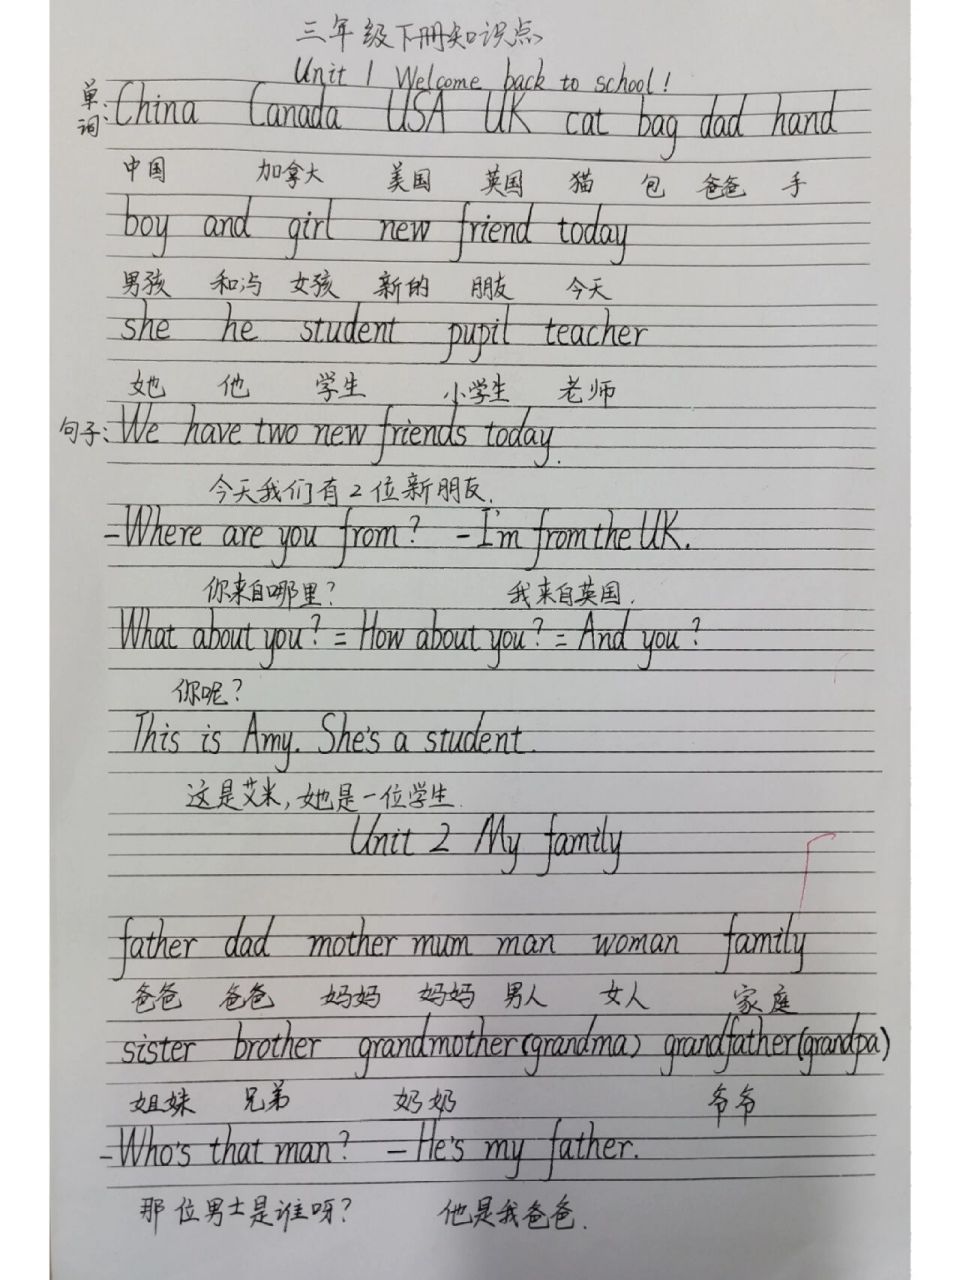 三年级下册知识点
Unit 1 Welcome back to school!
单词: China Canada USA UK cat bag dad hand
中国 加拿大 美国 英国 猫 包 爸爸 手
boy and girl new friend today
男孩 和,与 女孩 新的 朋友 今天
she he student pupil teacher
她 他 学生 小学生 老师
句子: We have two new friends today.
今天我们有2位新朋友.
-Where are you from? -I'm from the UK.
你来自哪里? 我来自英国.
What about you? = How about you? = And you?
你呢?
This is Amy. She's a student.
这是艾米,她是一位学生.
Unit 2 My family
father dad mother mum man woman family
爸爸 爸爸 妈妈 妈妈 男人 女人 家庭
sister brother grandmother(grandma) grandfather(grandpa)
姐妹 兄弟 奶奶 爷爷
-Who's that man? -He's my father.
那位男士是谁呀? 他是我爸爸.